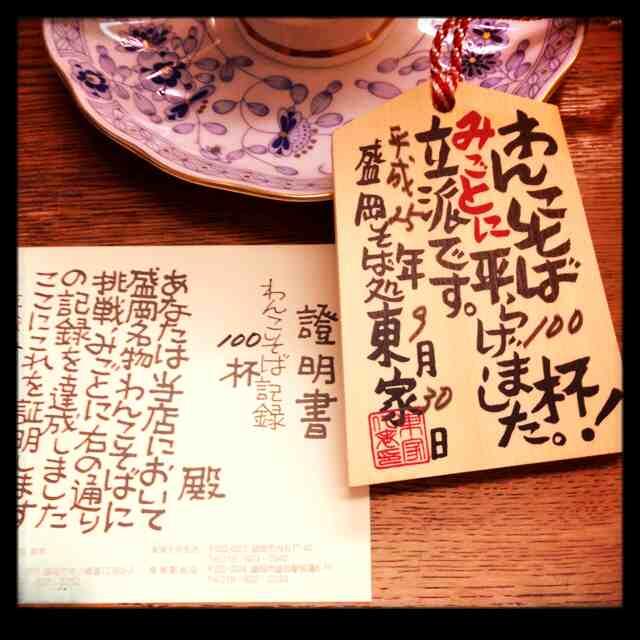 わんこそば100杯!
みごとに平らげました。
立派です。
平成25年9月30日
盛岡そば処東家
證明書
わんこそば記録
100杯
殿
あなたは当店において
盛岡名物わんこそばに
挑戦、みごとに右の通り
の記録を達成しました
ここにこれを証明します